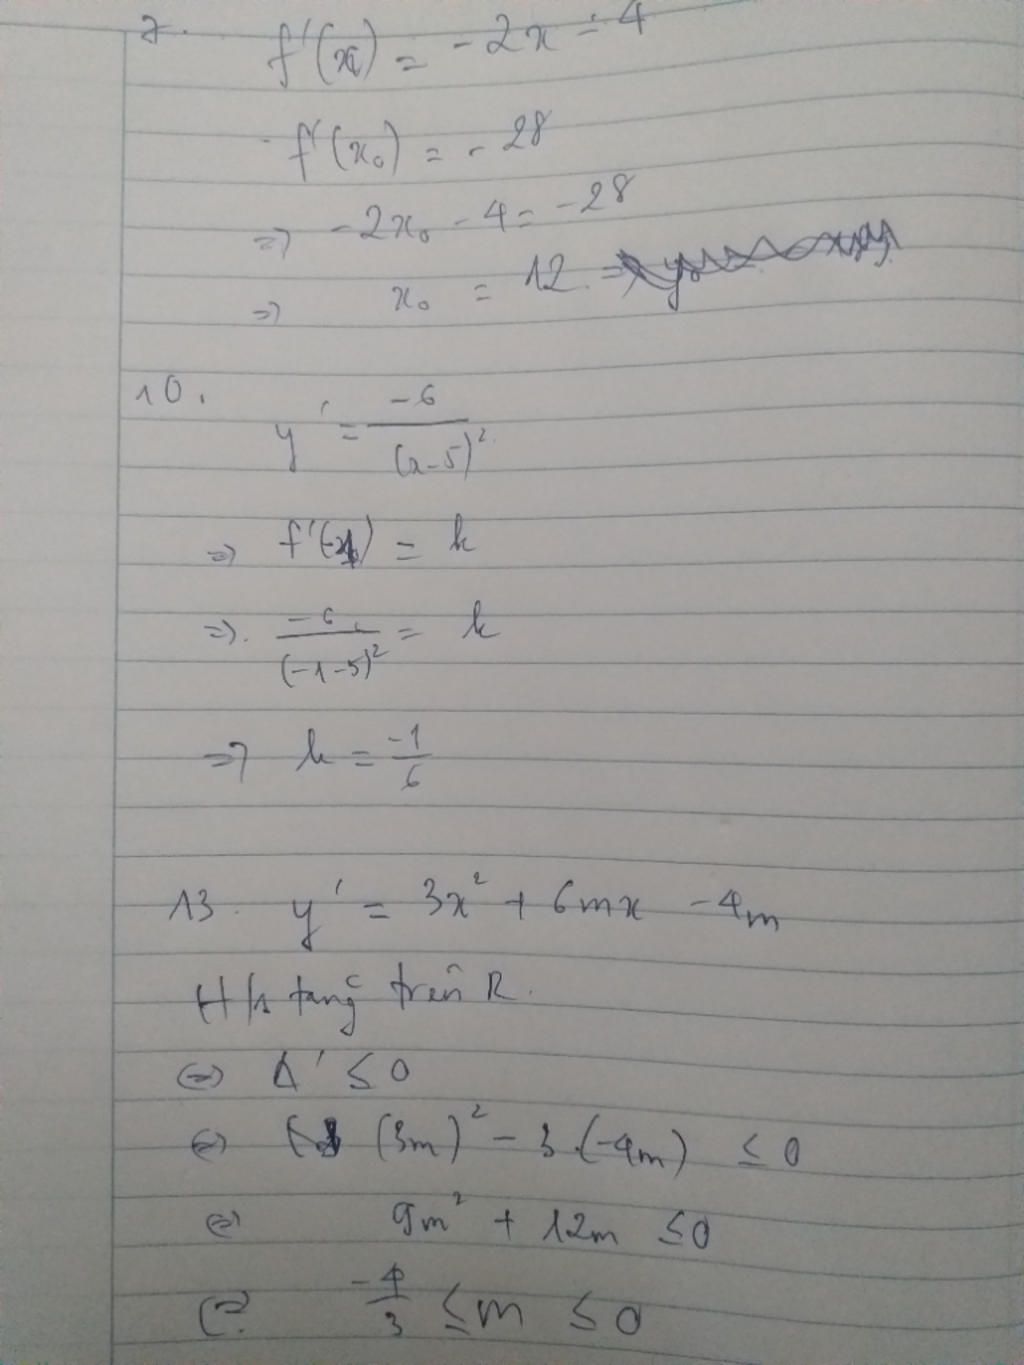 7. f'(x) = -2x - 4
f'(x₀) = -28
=> -2x₀ - 4 = -28
=> x₀ = 12
10. y' = -6/(x-5)²
=> f'(-1) = k
=> -6/(-1-5)² = k
=> k = -1/6
13. y' = 3x² + 6mx - 4m
H/s tăng trên R.
<=> Δ' ≤ 0
<=> (3m)² - 3.(-4m) ≤ 0
<=> 9m² + 12m ≤ 0
<=> -4/3 ≤ m ≤ 0